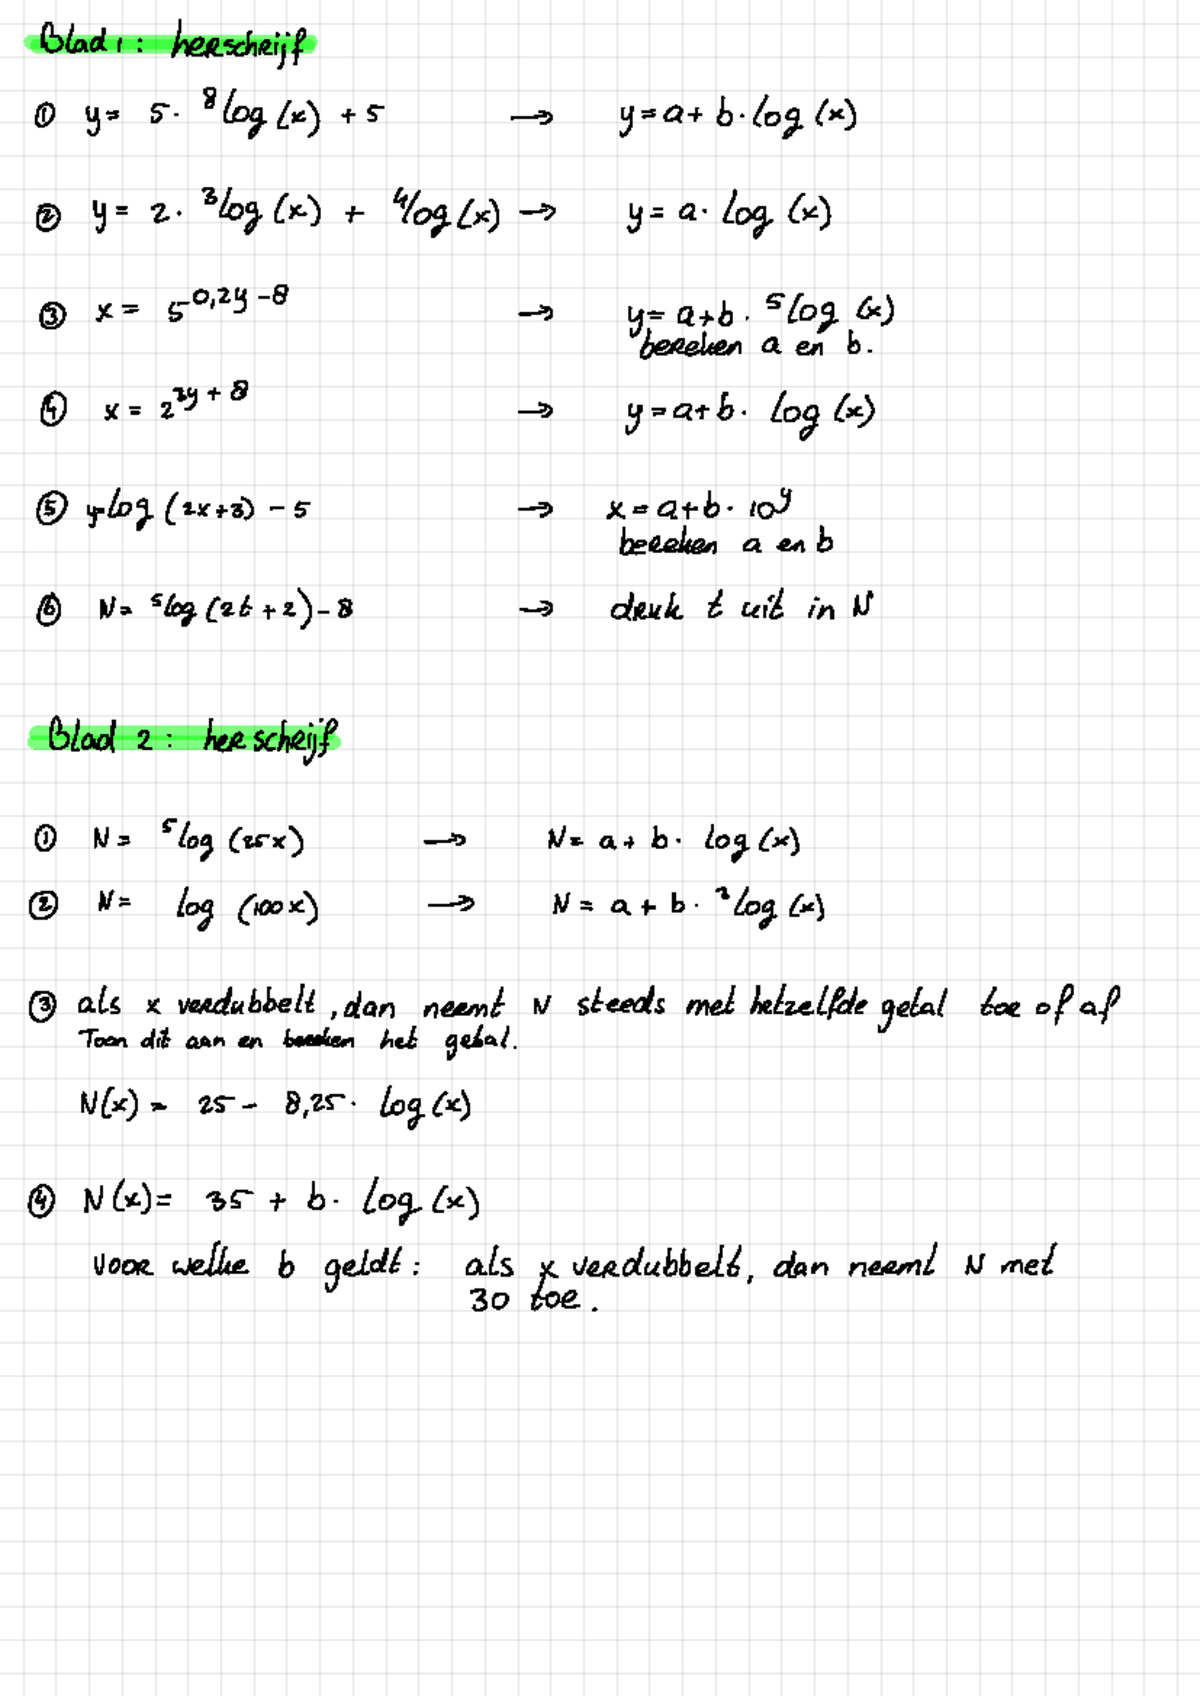 Blad 1: herschrijf
① y= 5· ⁸log(x) + 5 → y=a+ b·log(x)
② y= 2· ³log(x) + ⁴log(x) → y= a· log(x)
③ x= 5^0,2y-8 → y= a+b· ⁵log(x)
bereken a en b.
④ x= 2^2y+8 → y=a+b· log(x)
⑤ y=log(2x+3) - 5 → x=a+b· 10^y
bereken a en b
⑥ N= ⁵log(2t+2)-8 → druk t uit in N
Blad 2: herschrijf
① N= ⁵log(25x) → N= a+ b· log(x)
② N= log(100x) → N= a + b· ²log(x)
③ als x verdubbelt, dan neemt N steeds met hetzelfde getal toe of af
Toon dit aan en bereken het getal.
N(x) = 25 - 8,25· log(x)
④ N(x)= 35 + b· log(x)
voor welke b geldt: als x verdubbelt, dan neemt N met
30 toe.